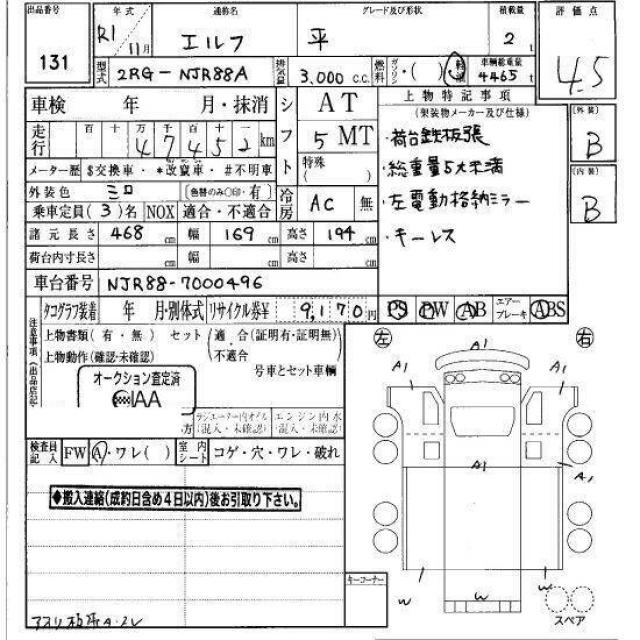 出品番号
131
年式
R1 11月
通称名
エルフ
グレード及び形状
平
積載量
2 t
評価点
4.5
型式
2RG-NJR88A
排気量
3,000 c.c.
燃料
ガソリン・( ) 軽油
車輌総重量
4465 t
車検 年 月・抹消
走行
百 十 万 千 百 十
47452 km
メーター歴 $交換車・*改竄車・#不明車
シフト
AT
5 MT
特殊
( )
上物特記事項
(架装物メーカー及び仕様)
・荷台鉄板張
・総重量5t未満
・左電動格納ミラー
・キーレス
(外装)
B
(内装)
B
外装色
シロ
(色替のみ○印・有)
乗車定員(3)名 NOX 適合・不適合
冷房
AC 無
諸元長さ 468 cm 幅 169 cm 高さ 194 cm
荷台内寸長さ cm 幅 cm 高さ cm
車台番号 NJR88-7000496
タコグラフ装着 年 月・別体式 リサイクル券¥ 9,170円
PS PW AB エアーブレーキ ABS
注意事項(出品店記)
上物書類(有・無) セット(適 合(証明有・証明無)
・不適合
上物動作(確認・未確認) 号車とセット車輌
オークション査定済
IAA
方
ラジエーター内オイル
(混入・未確認)
エンジン内水
(混入・未確認)
検査員記入
FW A・ワレ( )
室内シート
コゲ・穴・ワレ・破れ
◆搬入連絡(成約日含め4日以内)後お引取り下さい。
左
右
A1
A1
A1
A1
A1
W
W
W
スペア
キーコーナー